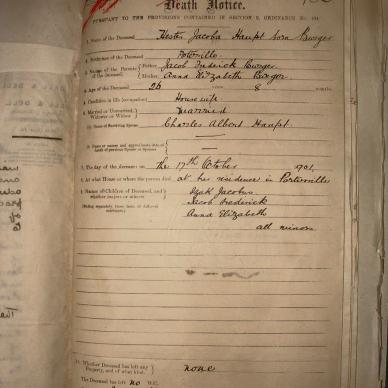 Death Notice.
PURSUANT TO THE PROVISIONS CONTAINED IN SECTION 9, ORDINANCE No. 104
1. Name of the Deceased Hester Jacoba Haupt born Burger
2. Birthplace of the Deceased Porterville
3. Names of the Parents of the Deceased { Father Jacob Frederick Burger
Mother Anna Elizabeth Burger
4. Age of the Deceased 26 years 8 months
5. Condition in life (occupation) Housewife
6. Married or Unmarried, Widower or Widow Married
Name of Surviving Spouse Charles Albert Haupt
Name or names and approximate date of death of previous Spouse or Spouses —
7. The day of the decease on the 17th October 1901.
8. At what House or where the person died at her residence in Porterville
9. Names of Children of Deceased, and whether majors or minors Izak Jacobus
Jacob Frederick
Anna Elizabeth
all minors
11. Whether Deceased has left any Property, and of what kind. } none
The Deceased has left no Will.